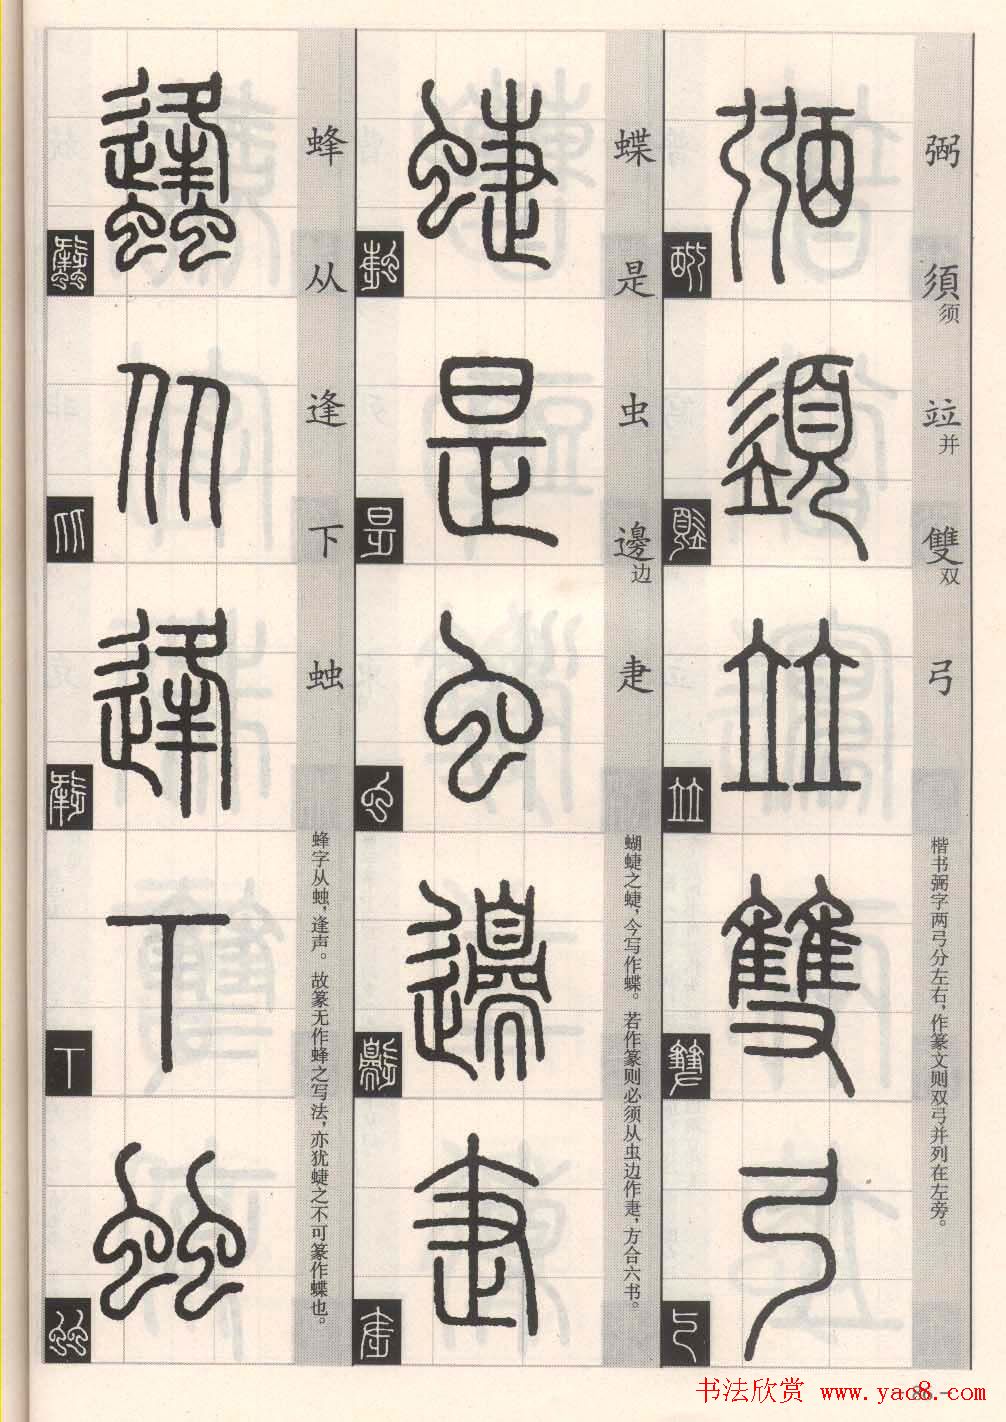 弼
須须
竝并
雙双
弓
楷书弼字两弓分左右，作篆文则双弓并列在左旁。
蝶
是
虫
邊边
疌
蝴蜨之蜨，今写作蝶。若作篆则必须从虫边作疌，方合六书。
蜂
从
逢
下
䖵
蜂字从䖵，逢声。故篆无作蜂之写法，亦犹蜨之不可篆作蝶也。
书法欣赏 www.yac8.com